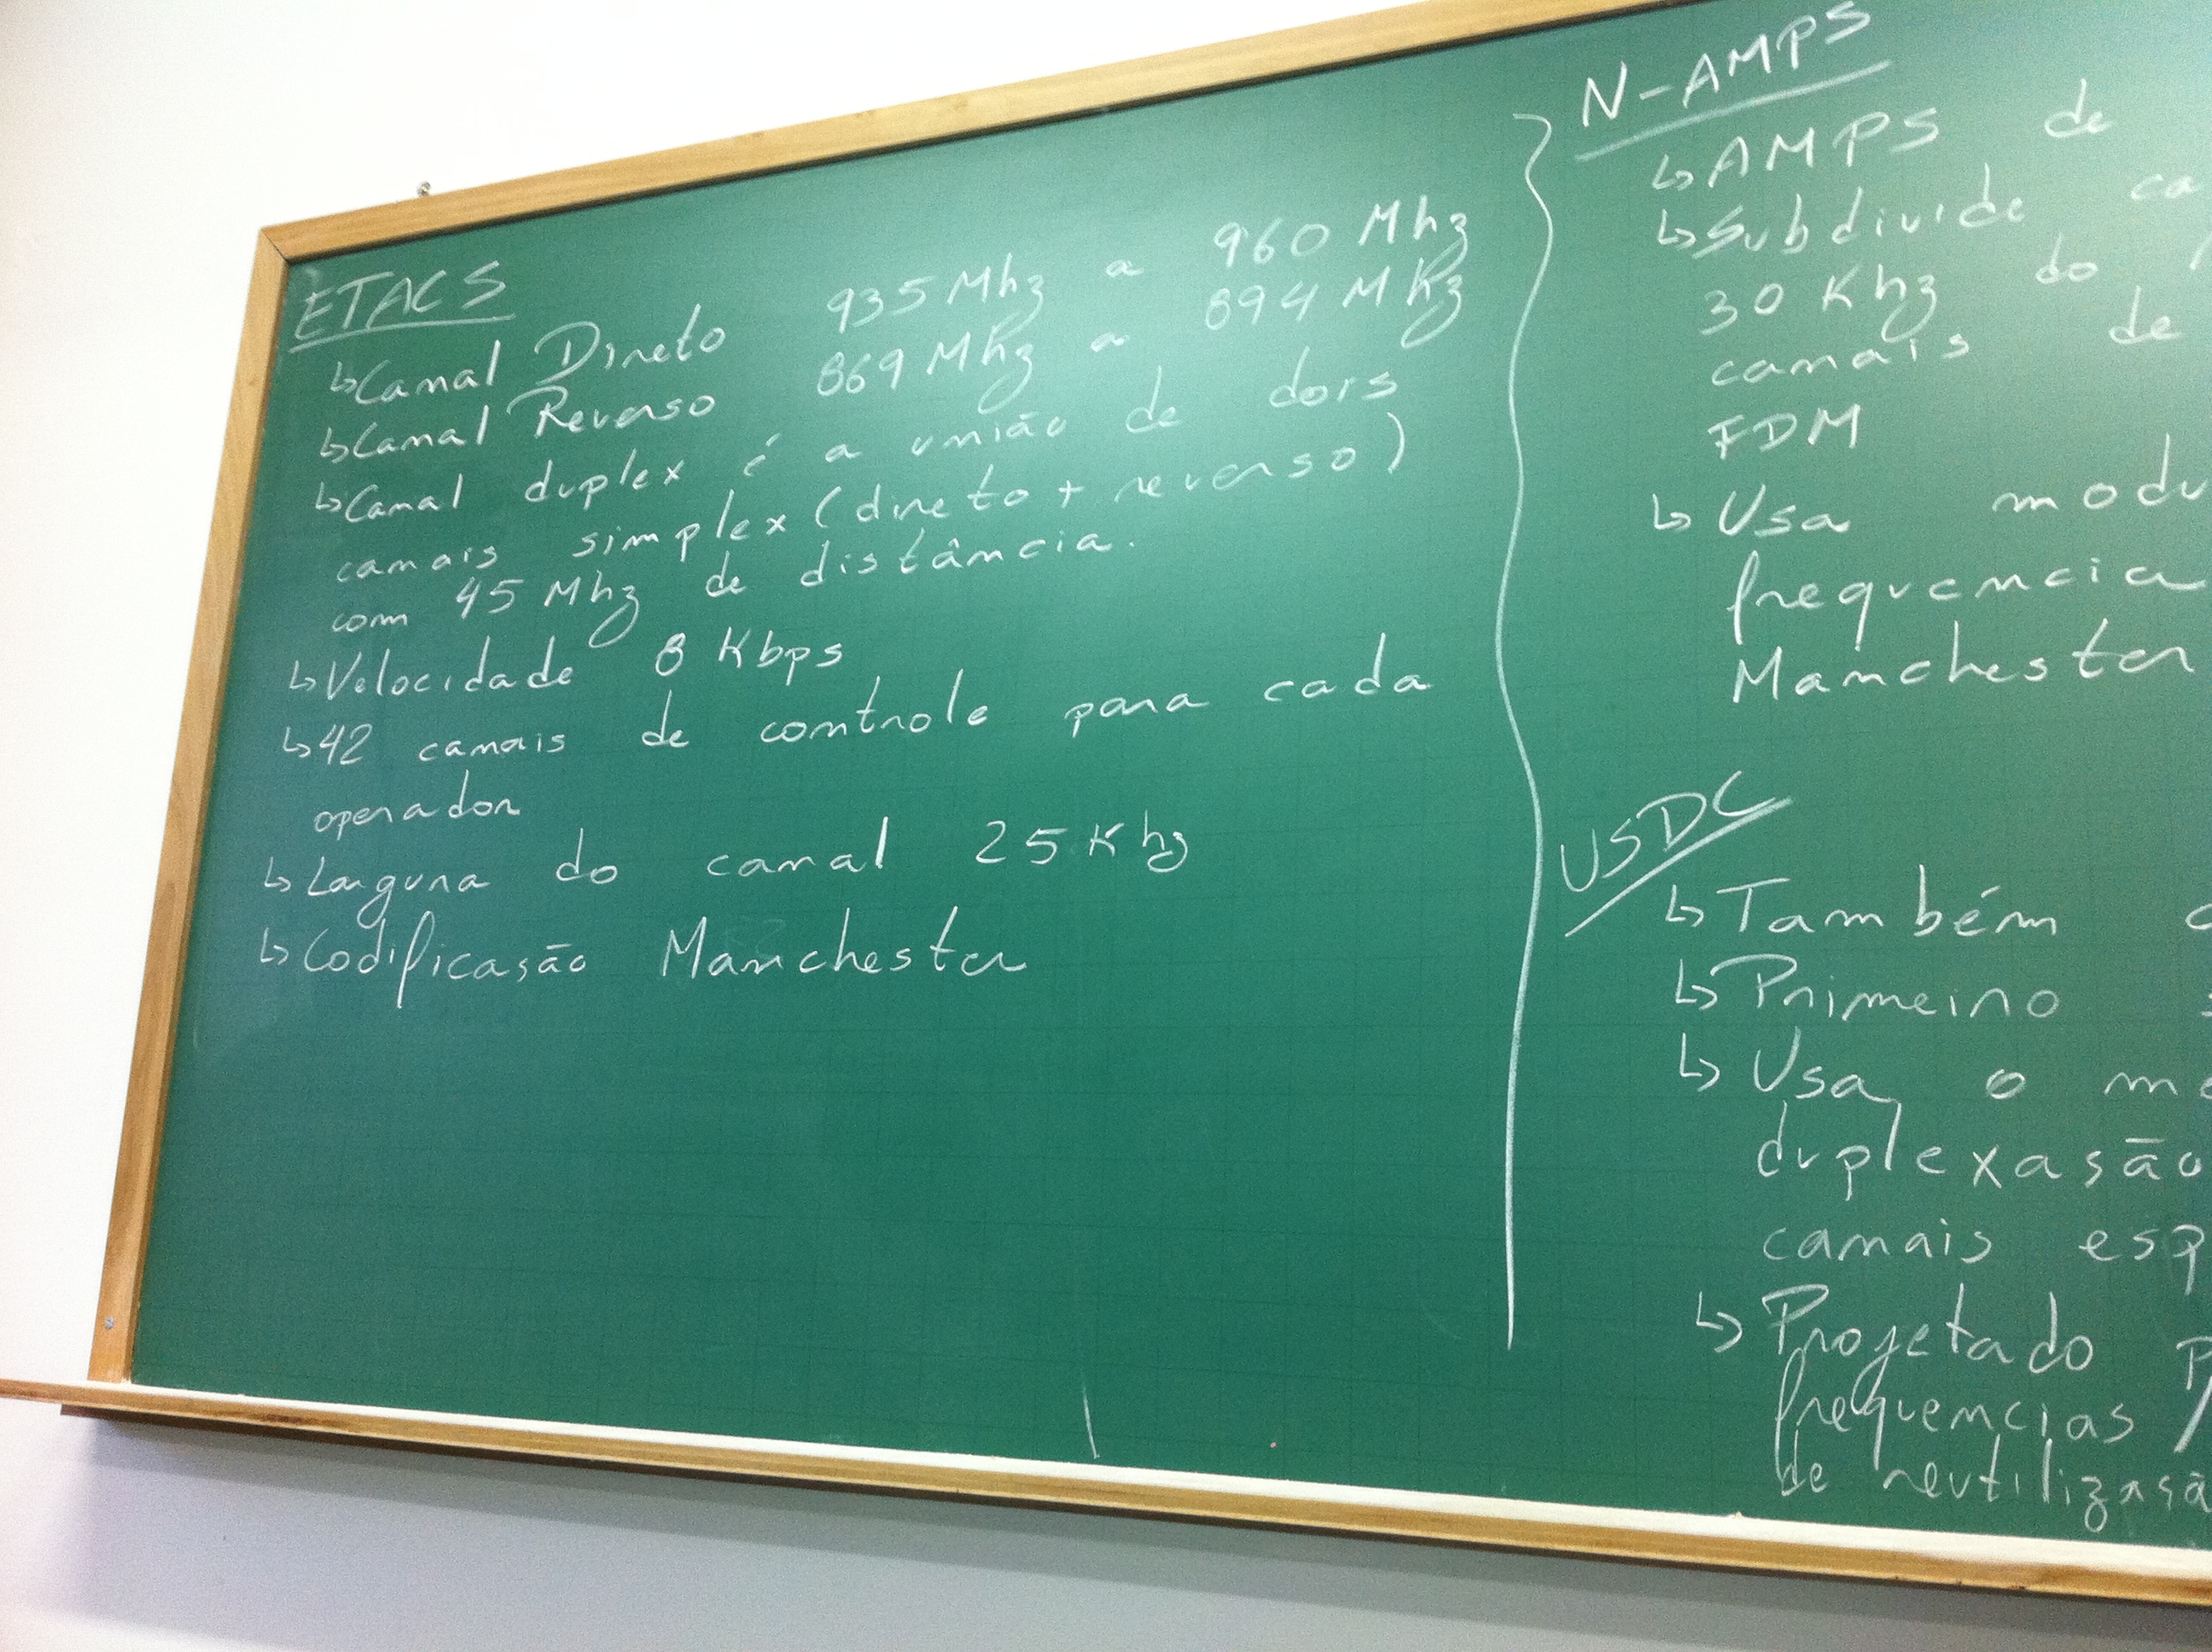 ETACS
↳ Canal Direto 935 Mhz a 960 Mhz
↳ Canal Reverso 869 Mhz a 894 Mhz
↳ Canal duplex é a união de dois
canais simplex (direto + reverso)
com 45 Mhz de distância.
↳ Velocidade 8 Kbps
↳ 42 canais de controle para cada
operador
↳ Largura do canal 25 Khz
↳ Codificasão Manchester
N-AMPS
↳ AMPS de
↳ Subdivide ca
30 Khz do
canais de
FDM
↳ Usa modu
frequencia
Manchester
USDC
↳ Também
↳ Primeiro
↳ Usa o m
duplexasão
canais esp
↳ Projetado p
frequencias /
de reutilizasã